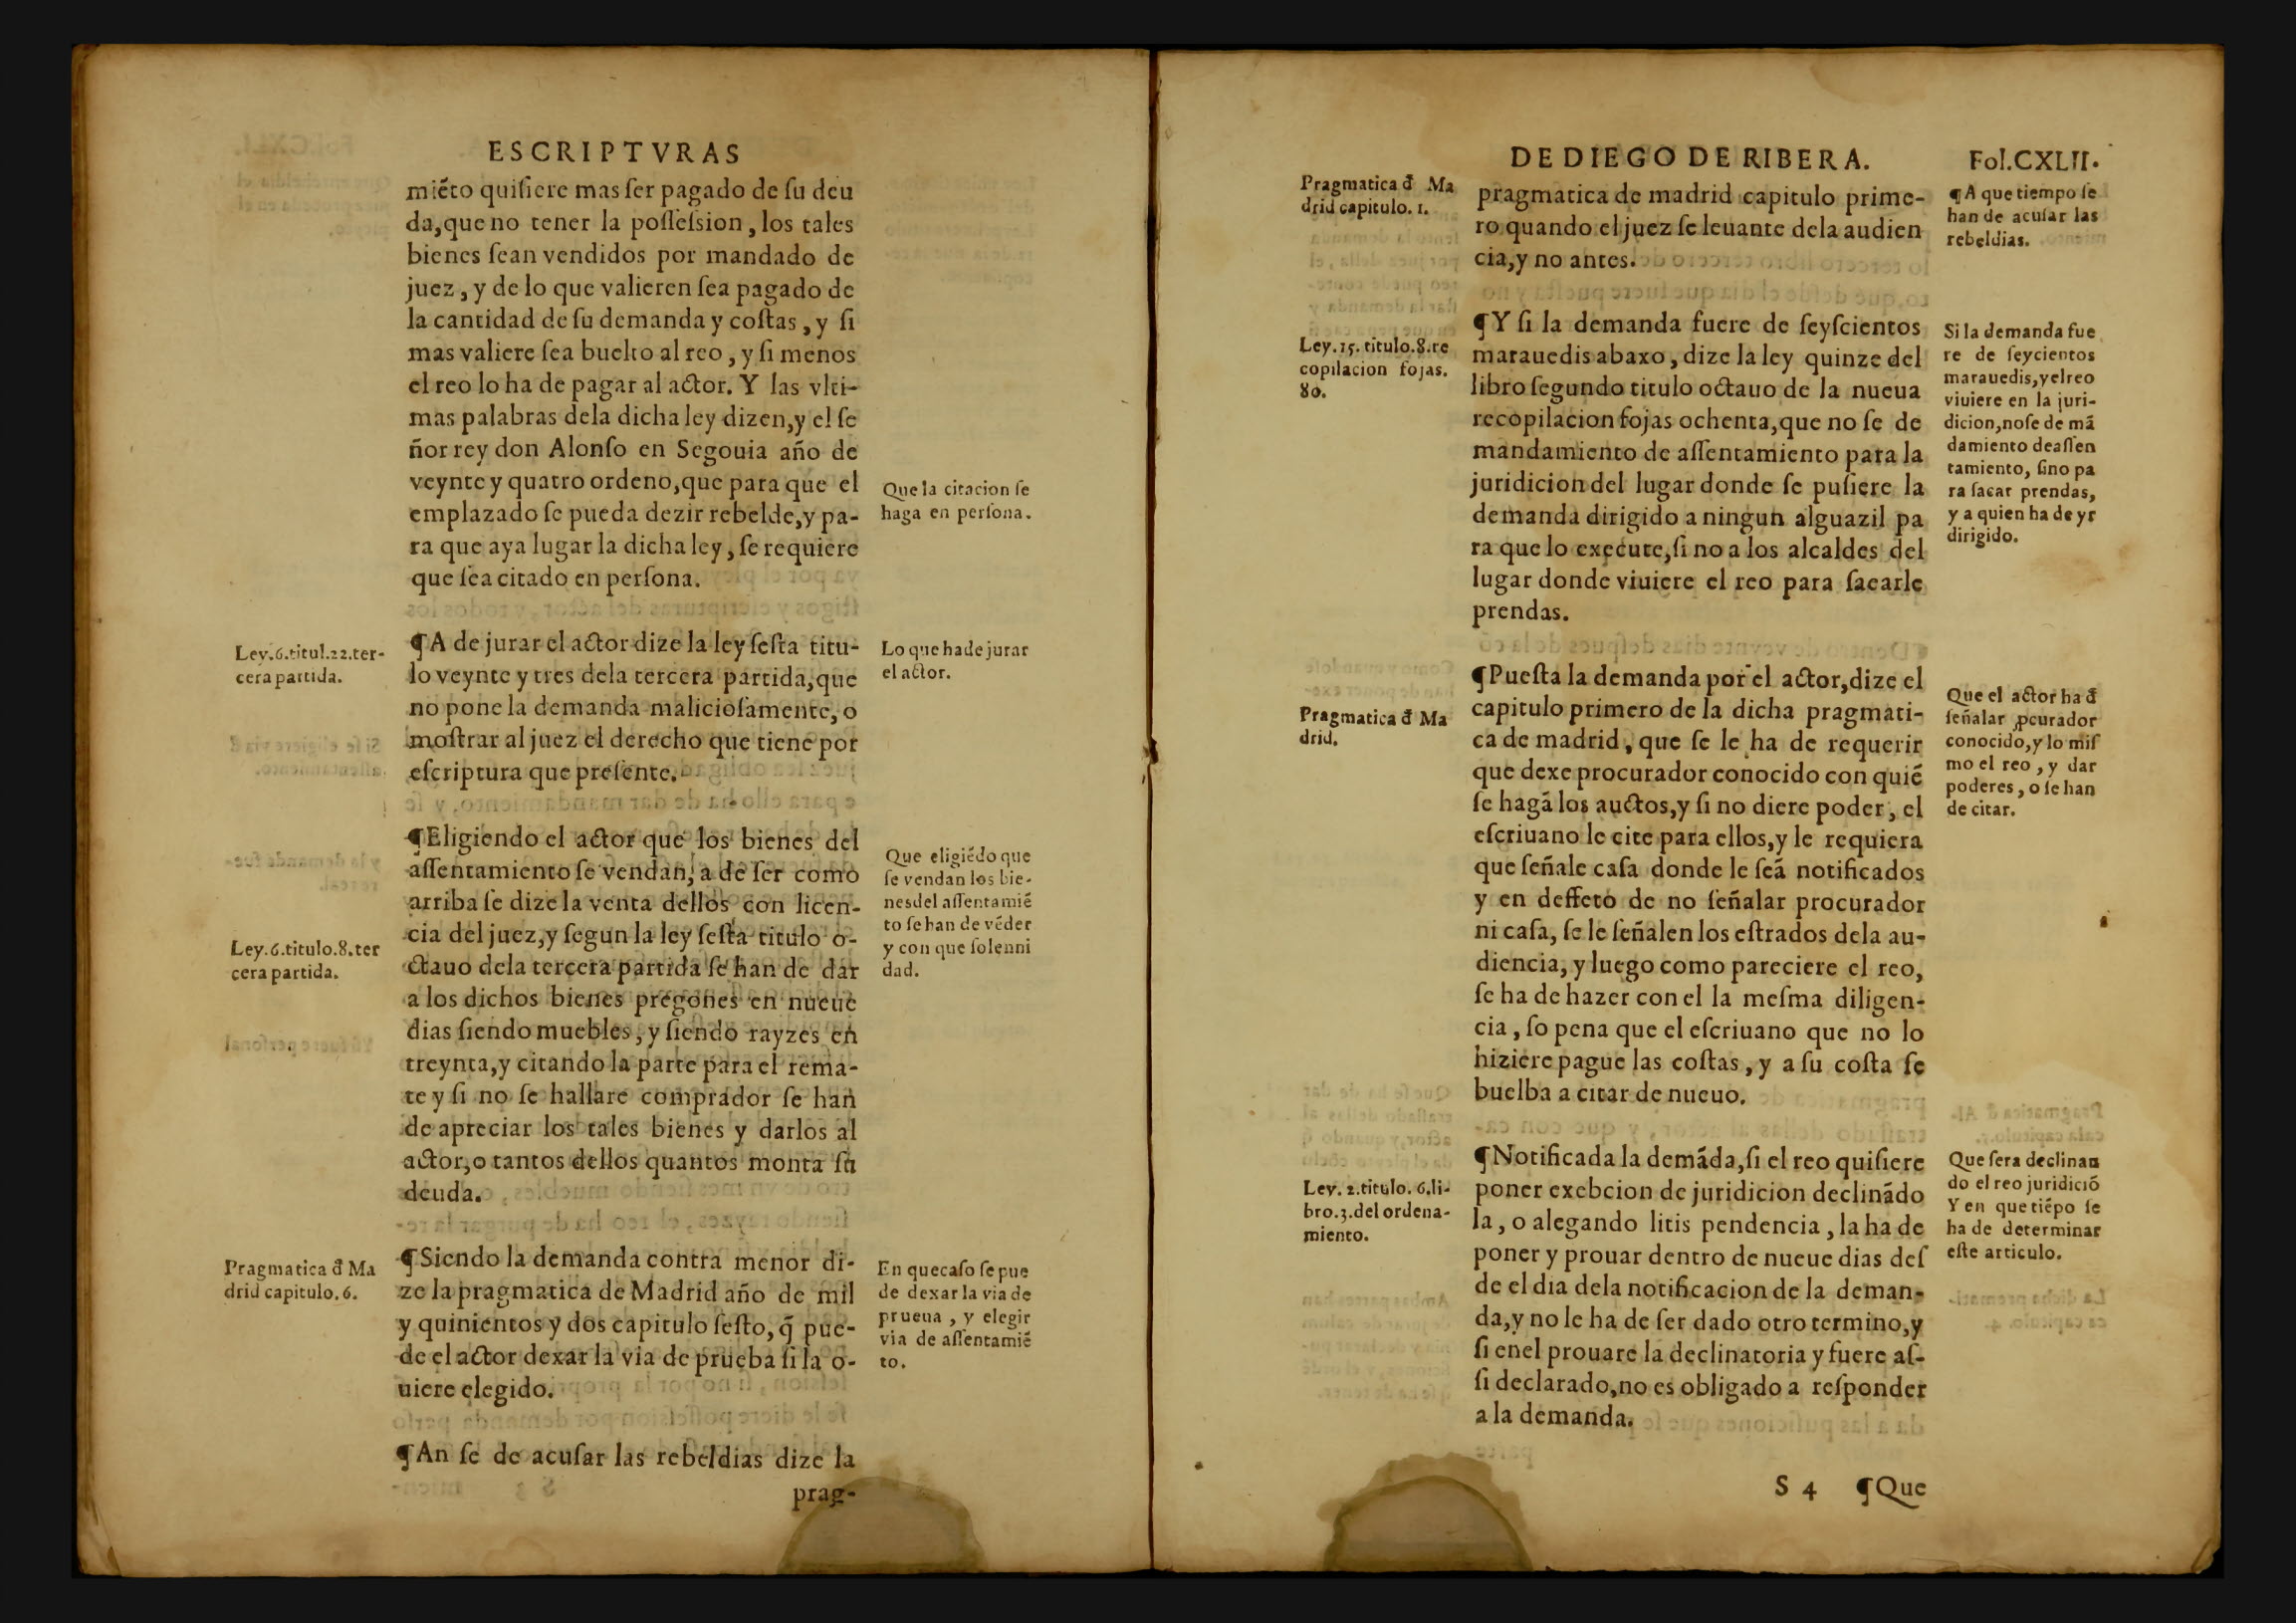 ESCRIPTVRAS
miẽto quiſiere mas ſer pagado de ſu deu
da, que no tener la poſſeſsion, los tales
bienes ſean vendidos por mandado de
juez, y de lo que valieren ſea pagado de
la cantidad de ſu demanda y coſtas, y ſi
mas valiere ſea buelto al reo, y ſi menos
el reo lo ha de pagar al actor. Y las vlti-
mas palabras dela dicha ley dizen, y el ſe
ñor rey don Alonſo en Segouia año de
veynte y quatro ordeno, que para que el
emplazado ſe pueda dezir rebelde, y pa-
ra que aya lugar la dicha ley, ſe requiere
que ſea citado en perſona.
Que la citacion ſe
haga en perſona.
Ley.6.titul.22.ter-
cera partida.
¶A de jurar el actor dize la ley ſeſta titu-
lo veynte y tres dela tercera partida, que
no pone la demanda malicioſamente, o
moſtrar al juez el derecho que tiene por
eſcriptura que preſente.
Lo que hade jurar
el actor.
¶Eligiendo el actor que los bienes del
aſſentamiento ſe vendan, a de ſer como
arriba ſe dize la venta dellos con licen-
cia del juez, y ſegun la ley ſeſta titulo o-
ctauo dela tercera partida ſe han de dar
a los dichos bienes pregones en nueue
dias ſiendo muebles, y ſiendo rayzes en
treynta, y citando la parte para el rema-
te y ſi no ſe hallare comprador ſe han
de apreciar los tales bienes y darlos al
actor, o tantos dellos quantos monta ſu
deuda.
Que eligiẽdo que
ſe vendan los bie-
nesdel aſſentamiẽ
to ſe han de vẽder
y con que ſolenni
dad.
Ley.6.titulo.8.ter
cera partida.
Pragmatica đ Ma
drid capitulo.6.
¶Siendo la demanda contra menor di-
ze la pragmatica de Madrid año de mil
y quinientos y dos capitulo ſeſto, q̃ pue-
de el actor dexar la via de prueba ſi la o-
uiere elegido.
En que caſo ſe pue
de dexar la via de
prueua, y elegir
via de aſſentamiẽ
to.
¶An ſe de acuſar las rebeldias dize la
prag-
DE DIEGO DE RIBERA.
Fol.CXLII.
Pragmatica đ Ma
drid capitulo.1.
pragmatica de madrid capitulo prime-
ro quando el juez ſe leuante dela audien
cia, y no antes.
¶A que tiempo ſe
han de acuſar las
rebeldias.
Ley.15.titulo.8.re
copilacion fojas.
80.
¶Y ſi la demanda fuere de ſeyſcientos
marauedis abaxo, dize la ley quinze del
libro ſegundo titulo octauo de la nueua
recopilacion fojas ochenta, que no ſe de
mandamiento de aſſentamiento para la
juridicion del lugar donde ſe puſiere la
demanda dirigido a ningun alguazil pa
ra que lo execute, ſi no a los alcaldes del
lugar donde viuiere el reo para ſacarle
prendas.
Si la demanda fue
re de ſeycientos
marauedis, yelreo
viuiere en la juri-
dicion, noſe de mã
damiento deaſſen
tamiento, ſino pa
ra ſacar prendas,
y a quien ha de yr
dirigido.
Pragmatica đ Ma
drid.
¶Pueſta la demanda por el actor, dize el
capitulo primero de la dicha pragmati-
ca de madrid, que ſe le ha de requerir
que dexe procurador conocido con quiẽ
ſe hagã los auctos, y ſi no diere poder, el
eſcriuano le cite para ellos, y le requiera
que ſeñale caſa donde le ſeã notificados
y en deffeto de no ſeñalar procurador
ni caſa, ſe le ſeñalen los eſtrados dela au-
diencia, y luego como pareciere el reo,
ſe ha de hazer con el la meſma diligen-
cia, ſo pena que el eſcriuano que no lo
hiziere pague las coſtas, y a ſu coſta ſe
buelba a citar de nueuo.
Que el actor ha đ
ſeñalar ꝓcurador
conocido, y lo miſ
mo el reo, y dar
poderes, o ſe han
de citar.
Ley.2.titulo.6.li-
bro.3.del ordena-
miento.
¶Notificada la demãda, ſi el reo quiſiere
poner exebcion de juridicion declinãdo
la, o alegando litis pendencia, la ha de
poner y prouar dentro de nueue dias deſ
de el dia dela notificacion de la deman-
da, y no le ha de ſer dado otro termino, y
ſi enel prouare la declinatoria y fuere aſ-
ſi declarado, no es obligado a reſponder
a la demanda.
Que ſera declinan
do el reo juridiciõ
Y en que tiẽpo ſe
ha de determinar
eſte articulo.
S 4 ¶Que